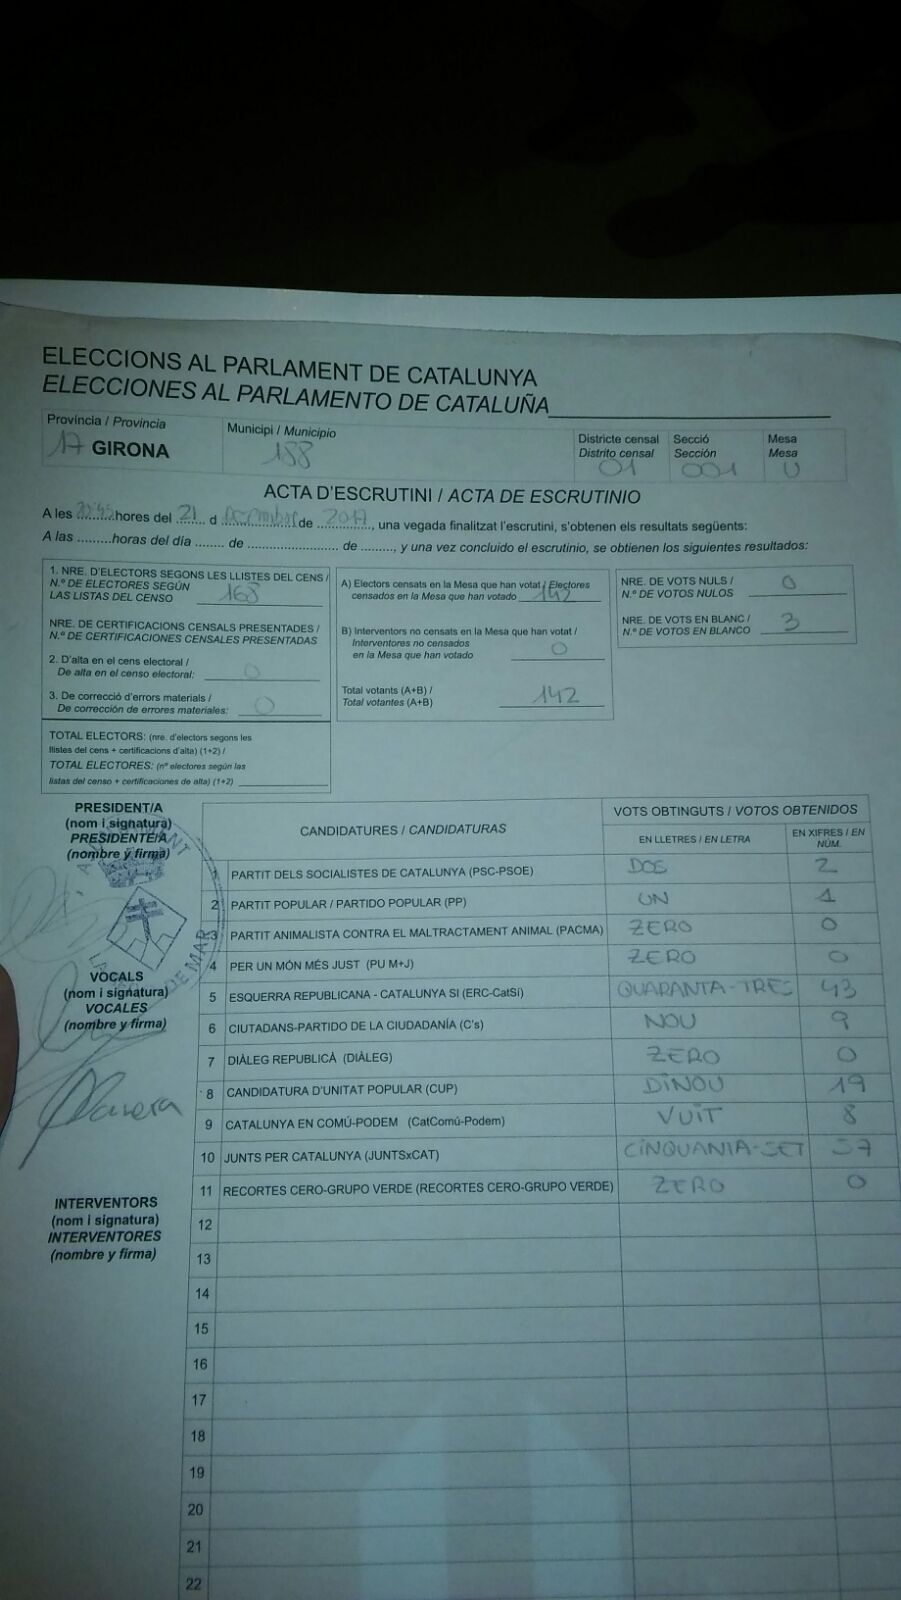 ELECCIONS AL PARLAMENT DE CATALUNYA
ELECCIONES AL PARLAMENTO DE CATALUÑA
Província / Provincia
17 GIRONA
Municipi / Municipio
188
Districte censal
Distrito censal
01
Secció
Sección
001
Mesa
Mesa
U
ACTA D'ESCRUTINI / ACTA DE ESCRUTINIO
A les ........hores del 21 d ........ de 2017, una vegada finalitzat l'escrutini, s'obtenen els resultats següents:
A las .........horas del día ........ de ........................ de ........., y una vez concluido el escrutinio, se obtienen los siguientes resultados:
1. NRE. D'ELECTORS SEGONS LES LLISTES DEL CENS /
N.º DE ELECTORES SEGÚN
LAS LISTAS DEL CENSO 168
NRE. DE CERTIFICACIONS CENSALS PRESENTADES /
N.º DE CERTIFICACIONES CENSALES PRESENTADAS
2. D'alta en el cens electoral /
De alta en el censo electoral: 0
3. De correcció d'errors materials /
De corrección de errores materiales: 0
TOTAL ELECTORS: (nre. d'electors segons les
llistes del cens + certificacions d'alta) (1+2) /
TOTAL ELECTORES: (nº electores según las
listas del censo + certificaciones de alta) (1+2)
A) Electors censats en la Mesa que han votat / Electores
censados en la Mesa que han votado 142
B) Interventors no censats en la Mesa que han votat /
Interventores no censados
en la Mesa que han votado 0
Total votants (A+B) /
Total votantes (A+B) 142
NRE. DE VOTS NULS /
N.º DE VOTOS NULOS 0
NRE. DE VOTS EN BLANC /
N.º DE VOTOS EN BLANCO 3
PRESIDENT/A
(nom i signatura)
PRESIDENTE/A
(nombre y firma)
AJUNTAMENT
DE MAR
VOCALS
(nom i signatura)
VOCALES
(nombre y firma)
INTERVENTORS
(nom i signatura)
INTERVENTORES
(nombre y firma)
CANDIDATURES / CANDIDATURAS
VOTS OBTINGUTS / VOTOS OBTENIDOS
EN LLETRES / EN LETRA
EN XIFRES / EN NÚM.
1 PARTIT DELS SOCIALISTES DE CATALUNYA (PSC-PSOE) DOS 2
2 PARTIT POPULAR / PARTIDO POPULAR (PP) UN 1
3 PARTIT ANIMALISTA CONTRA EL MALTRACTAMENT ANIMAL (PACMA) ZERO 0
4 PER UN MÓN MÉS JUST (PU M+J) ZERO 0
5 ESQUERRA REPUBLICANA - CATALUNYA SI (ERC-CatSí) QUARANTA-TRES 43
6 CIUTADANS-PARTIDO DE LA CIUDADANÍA (C's) NOU 9
7 DIÀLEG REPUBLICÀ (DIÀLEG) ZERO 0
8 CANDIDATURA D'UNITAT POPULAR (CUP) DINOU 19
9 CATALUNYA EN COMÚ-PODEM (CatComú-Podem) VUIT 8
10 JUNTS PER CATALUNYA (JUNTSxCAT) CINQUANTA-SET 57
11 RECORTES CERO-GRUPO VERDE (RECORTES CERO-GRUPO VERDE) ZERO 0
12
13
14
15
16
17
18
19
20
21
22